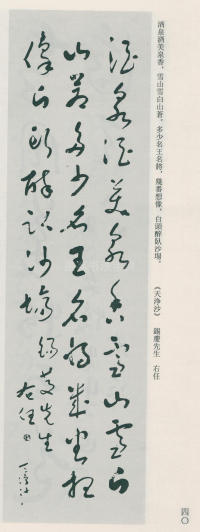 酒泉酒美泉香，雪山雪白山蒼，多少名王名將，幾番想像，白頭醉臥沙場。　《天净沙》　錫慶先生　右任
酒泉酒美泉香雪山雪白
山蒼多少名王名將幾番想
像白頭醉臥沙場錫慶先生
右任
天净沙
四〇